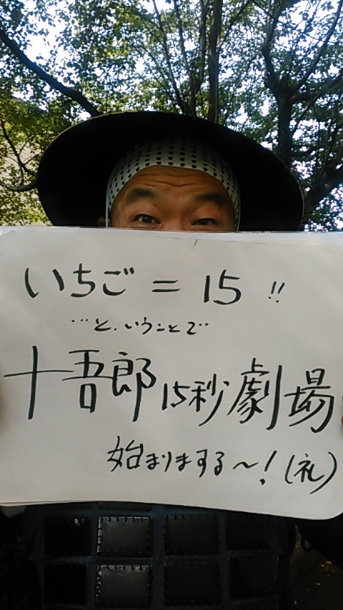 いちご = 15 !!
…と、いうことで…
十吾郎15秒劇場
始まりまする〜!(礼)